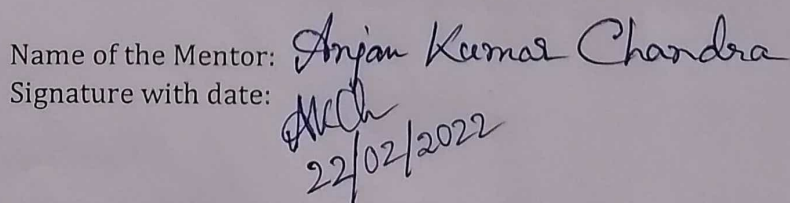 Name of the Mentor: Anjan Kumar Chandra
Signature with date:
AKCh
22/02/2022